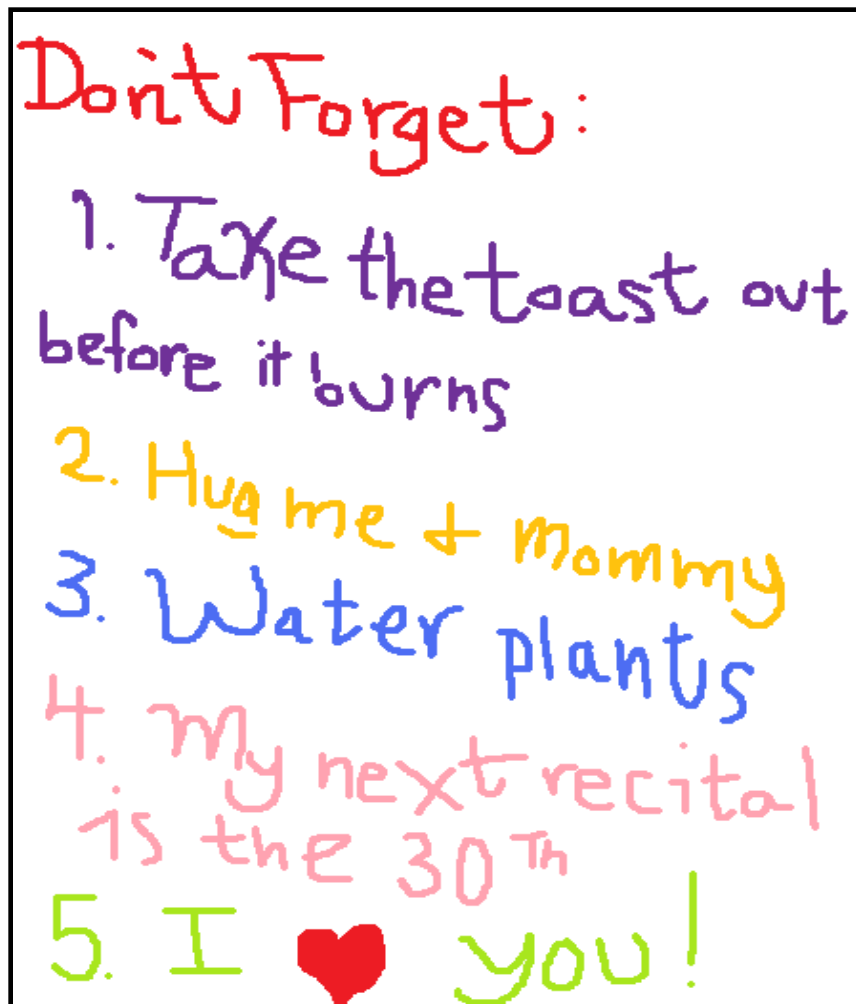 Don't Forget:
1. Take the toast out
before it burns
2. Hug me + mommy
3. Water plants
4. My next recital
is the 30Th
5. I ♥ you!